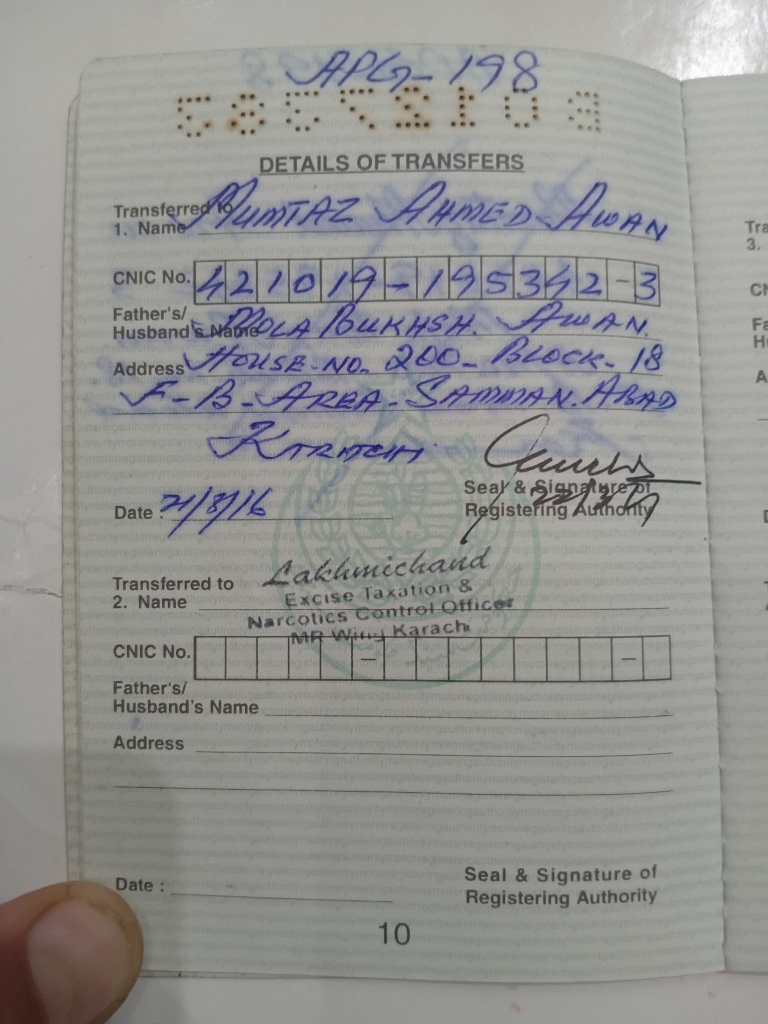 APG-198
DETAILS OF TRANSFERS
Transferred to
1. Name MUMTAZ AHMED-AWAN
CNIC No. 421019-195342-3
Father's/
Husband's Name MOLA BUKHSH. AWAN.
Address HOUSE-NO. 200-BLOCK-18
F-B-AREA-SAMMAN.ABAD
Seal & Signature of
Date : 21/3/16 Registering Authority
Lakhmichand
Transferred to
Excise Taxation &
2. Name
Narcotics Control Officer
MR Wing Karachi
CNIC No. - -
Father's/
Husband's Name
Address
Date :
Seal & Signature of
Registering Authority
10
Tra
3.
CN
Fa
Hu
A
D